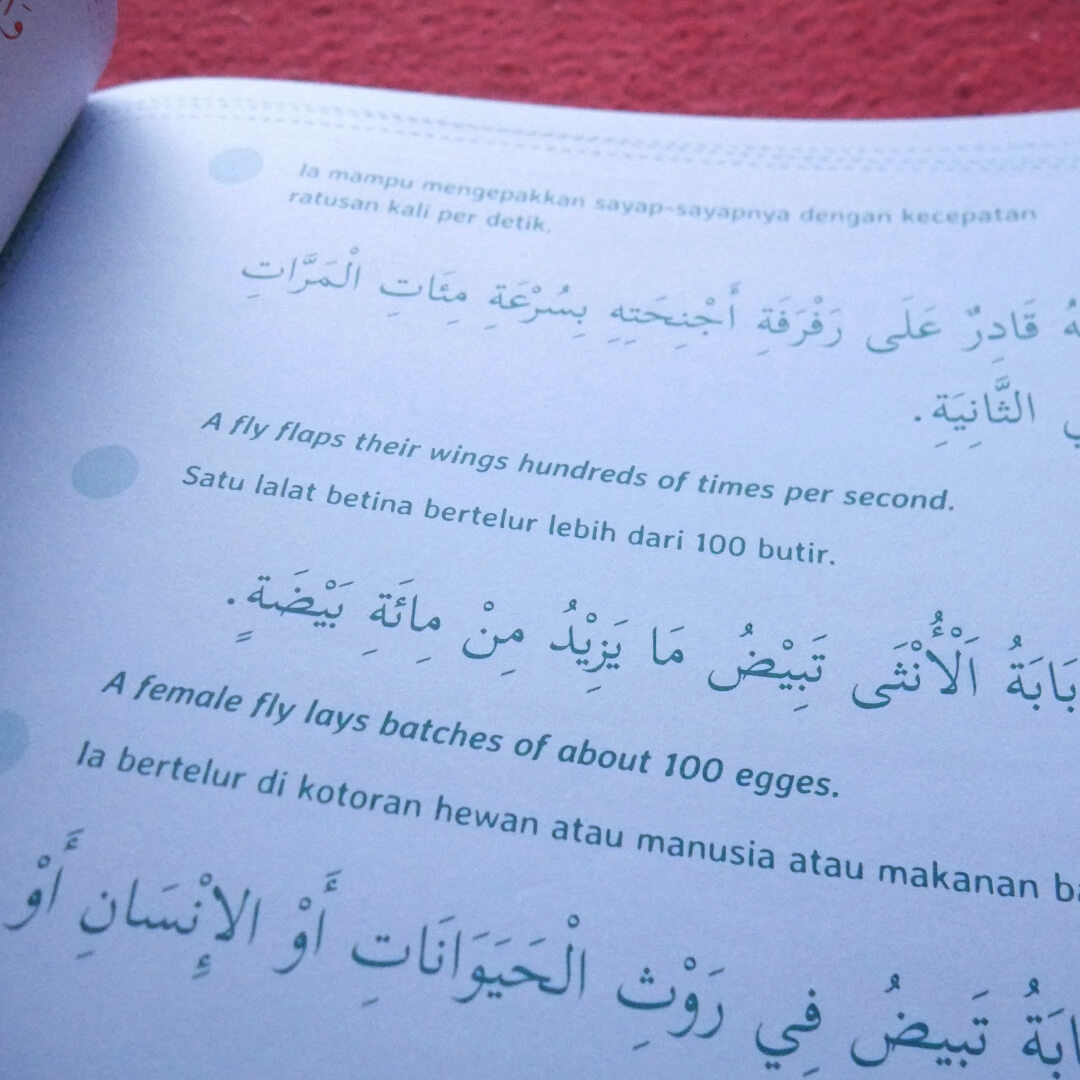 Ia mampu mengepakkan sayap-sayapnya dengan kecepatan
ratusan kali per detik.
قَادِرٌ عَلَى رَفْرَفَةِ أَجْنِحَتِهِ بِسُرْعَةِ مِئَاتِ الْمَرَّاتِ
الثَّانِيَةِ.
A fly flaps their wings hundreds of times per second.
Satu lalat betina bertelur lebih dari 100 butir.
اَلْأُنْثَى تَبِيْضُ مَا يَزِيْدُ مِنْ مِائَةِ بَيْضَةٍ.
A female fly lays batches of about 100 egges.
Ia bertelur di kotoran hewan atau manusia atau makanan
تَبِيضُ فِي رَوْثِ الْحَيَوَانَاتِ أَوْ الإِنْسَانِ أَوْ